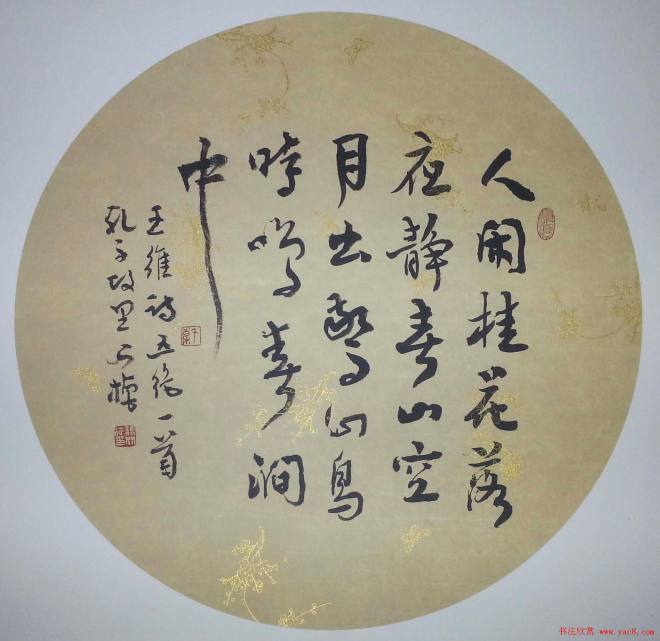 人闲桂花落
夜静春山空
月出惊山鸟
时鸣春涧
中
王维诗五绝一首
孔子故里
书法欣赏 www.yac8.com